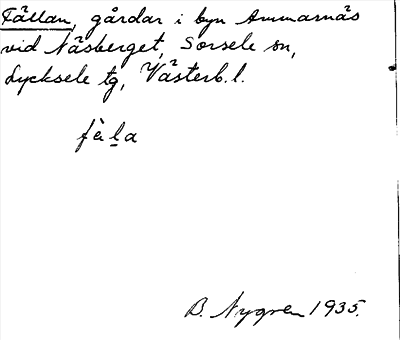 Fällan, gårdar i byn Ammarnäs
vid Näsberget, Sorsele sn,
Lycksele tg, Västerb. l.
fàl̲a
B. Nygren 1935.